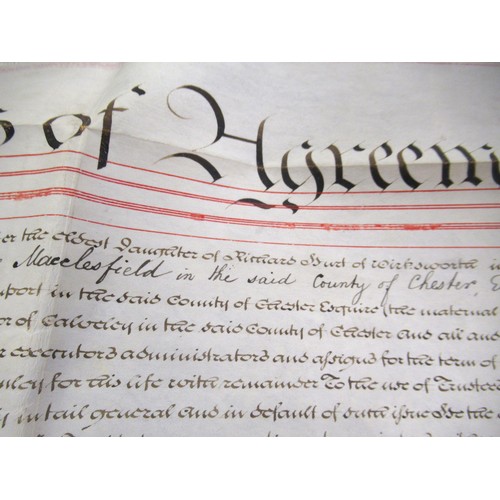 s of Agreem
er the eldest Daughter of Richard Hurt of Wirksworth in
Macclesfield in the said County of Chester, E
port in the said County of Chester Esquire (the maternal
or of Calveley in the said County of Chester and all and
r executors administrators and assigns for the term of
nley for his life with remainder To the use of Trustees
y in tail general and in default of such issue To the